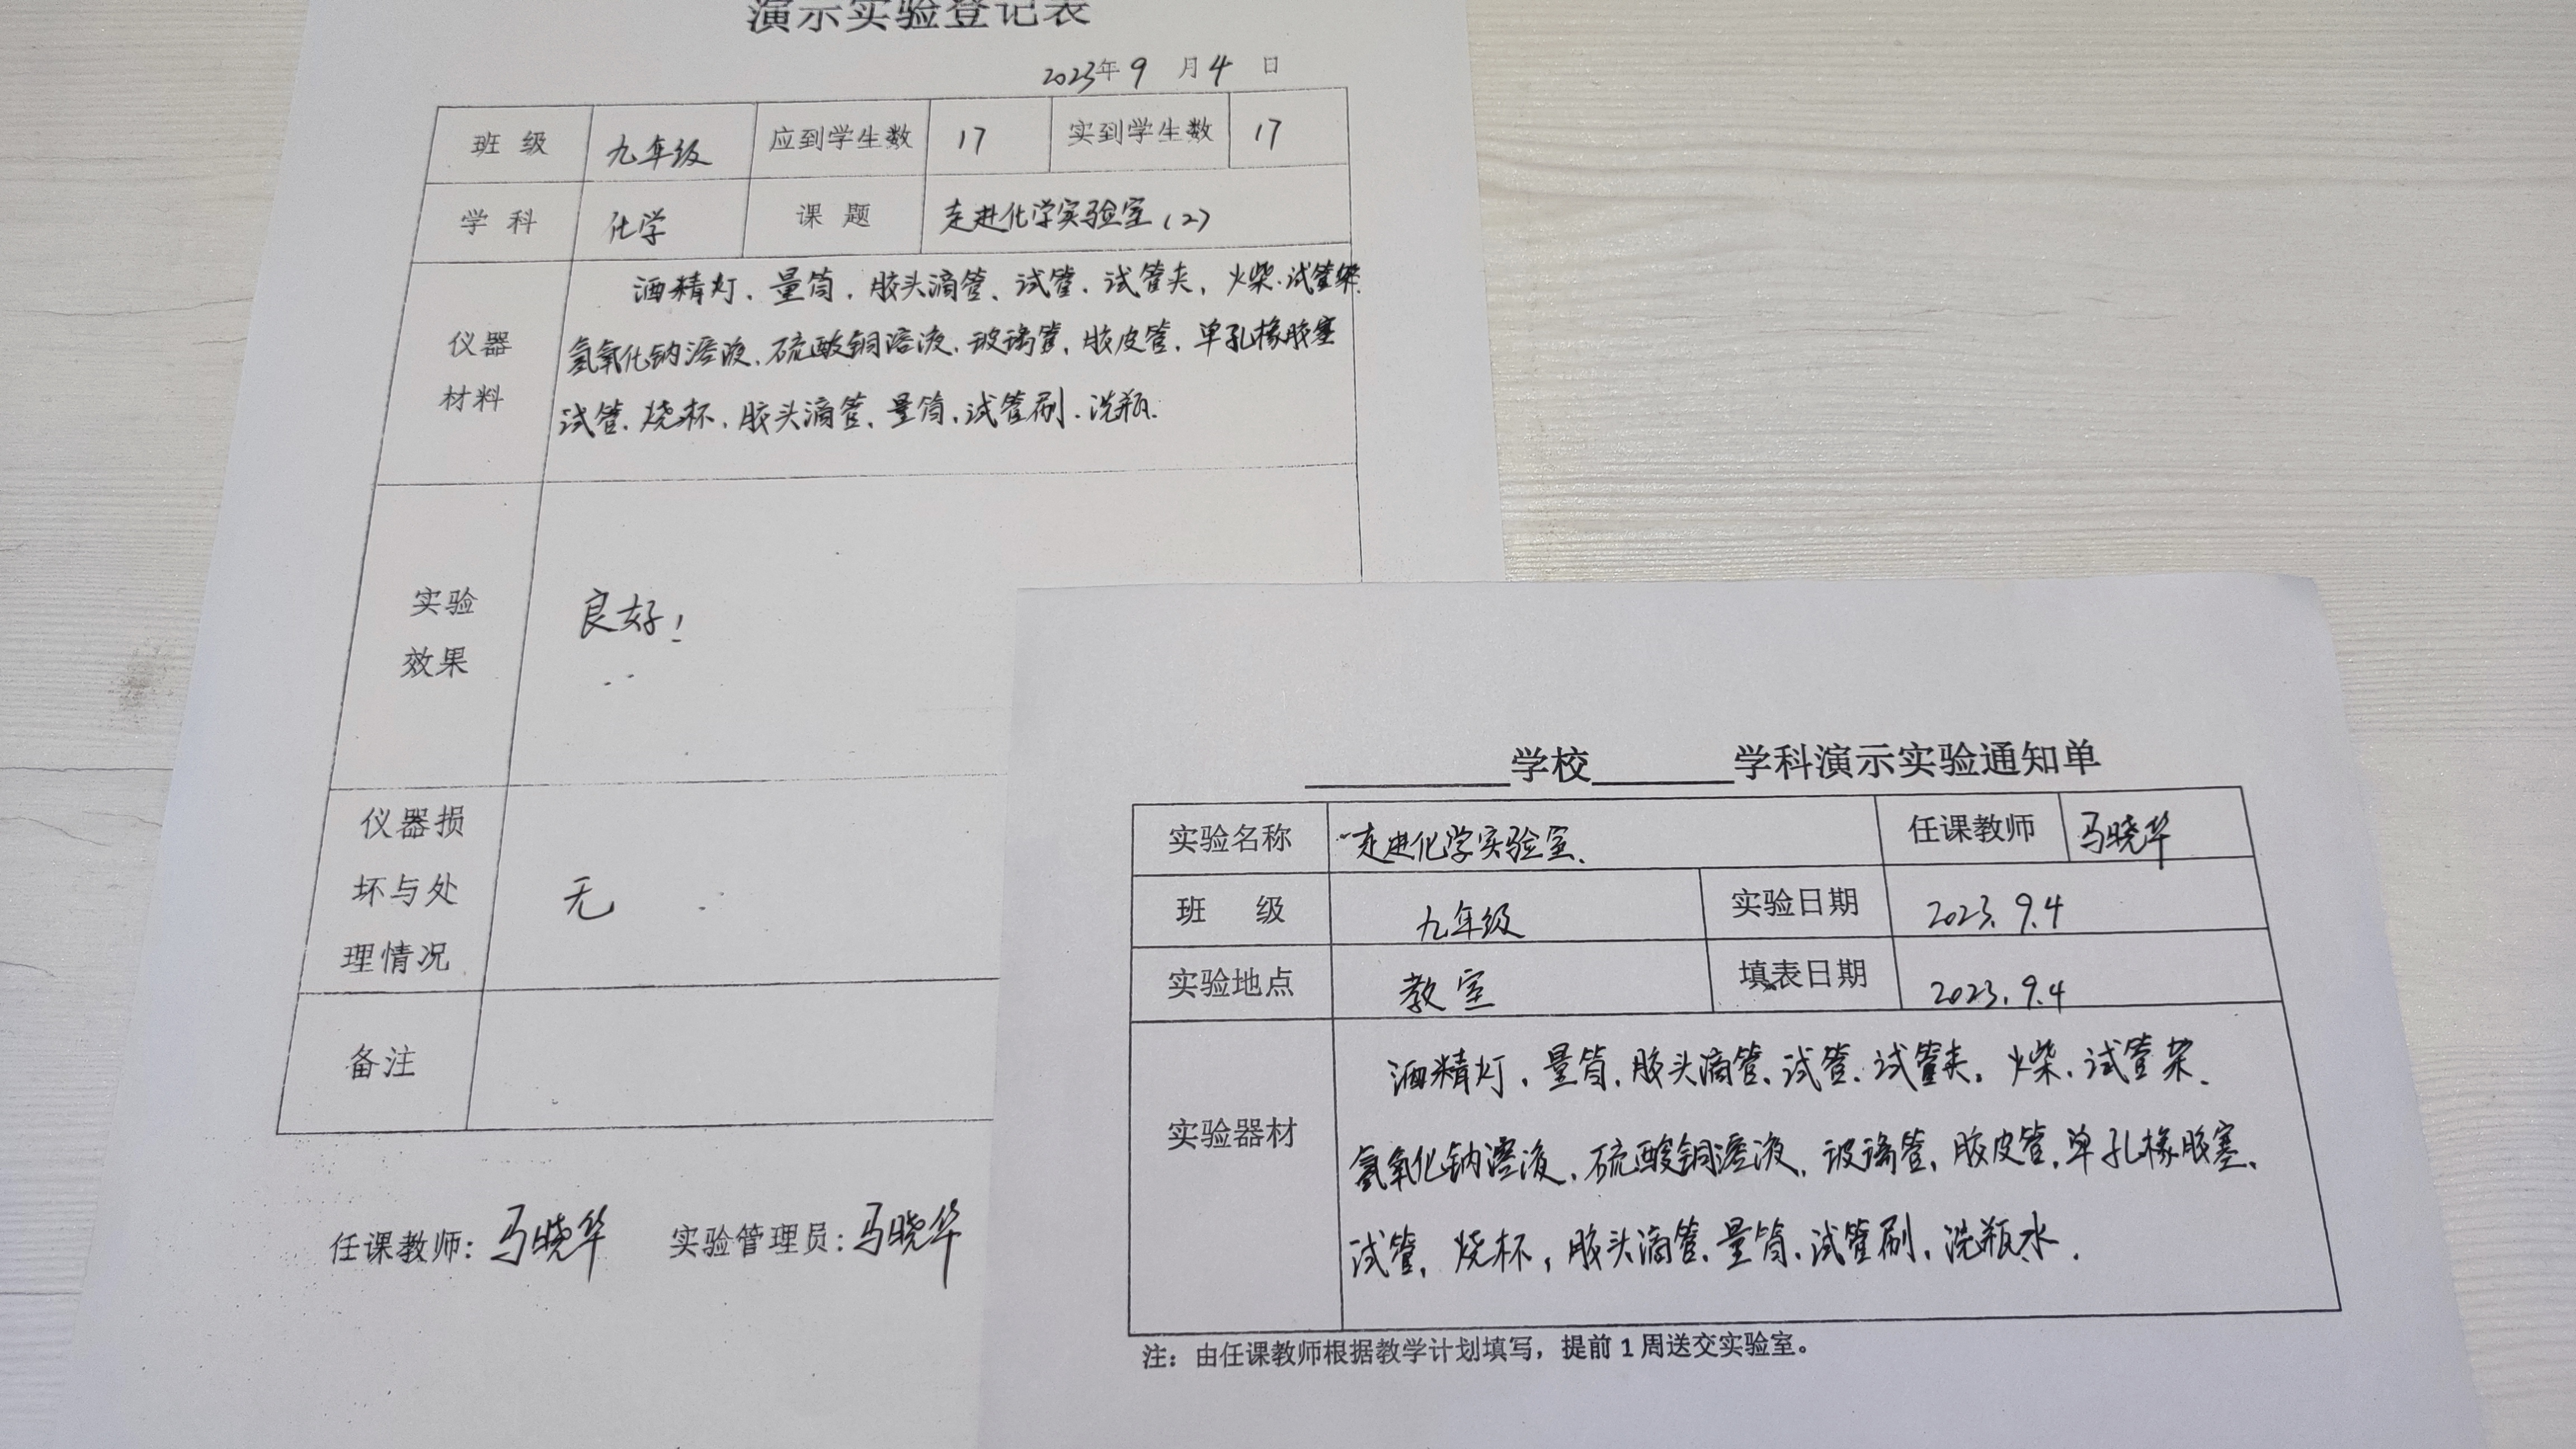 演示实验登记表
2023年9月4日
班 级 九年级 应到学生数 17 实到学生数 17
学 科 化学 课 题 走进化学实验室(2)
仪器
材料
酒精灯、量筒、胶头滴管、试管、试管夹、火柴、试管架
氢氧化钠溶液、硫酸铜溶液、玻璃管、胶皮管、单孔橡胶塞
试管、烧杯、胶头滴管、量筒、试管刷、洗瓶.
实验
效果
良好!
仪器损
坏与处
理情况
无
备注
任课教师: 马晓华 实验管理员: 马晓华
学校 学科演示实验通知单
实验名称 走进化学实验室、 任课教师 马晓华
班 级 九年级 实验日期 2023.9.4
实验地点 教室 填表日期 2023.9.4
实验器材
酒精灯、量筒、胶头滴管、试管、试管夹。火柴、试管架、
氢氧化钠溶液、硫酸铜溶液、玻璃管、胶皮管、单孔橡胶塞、
试管、烧杯，胶头滴管、量筒、试管刷、洗瓶水.
注：由任课教师根据教学计划填写，提前1周送交实验室。